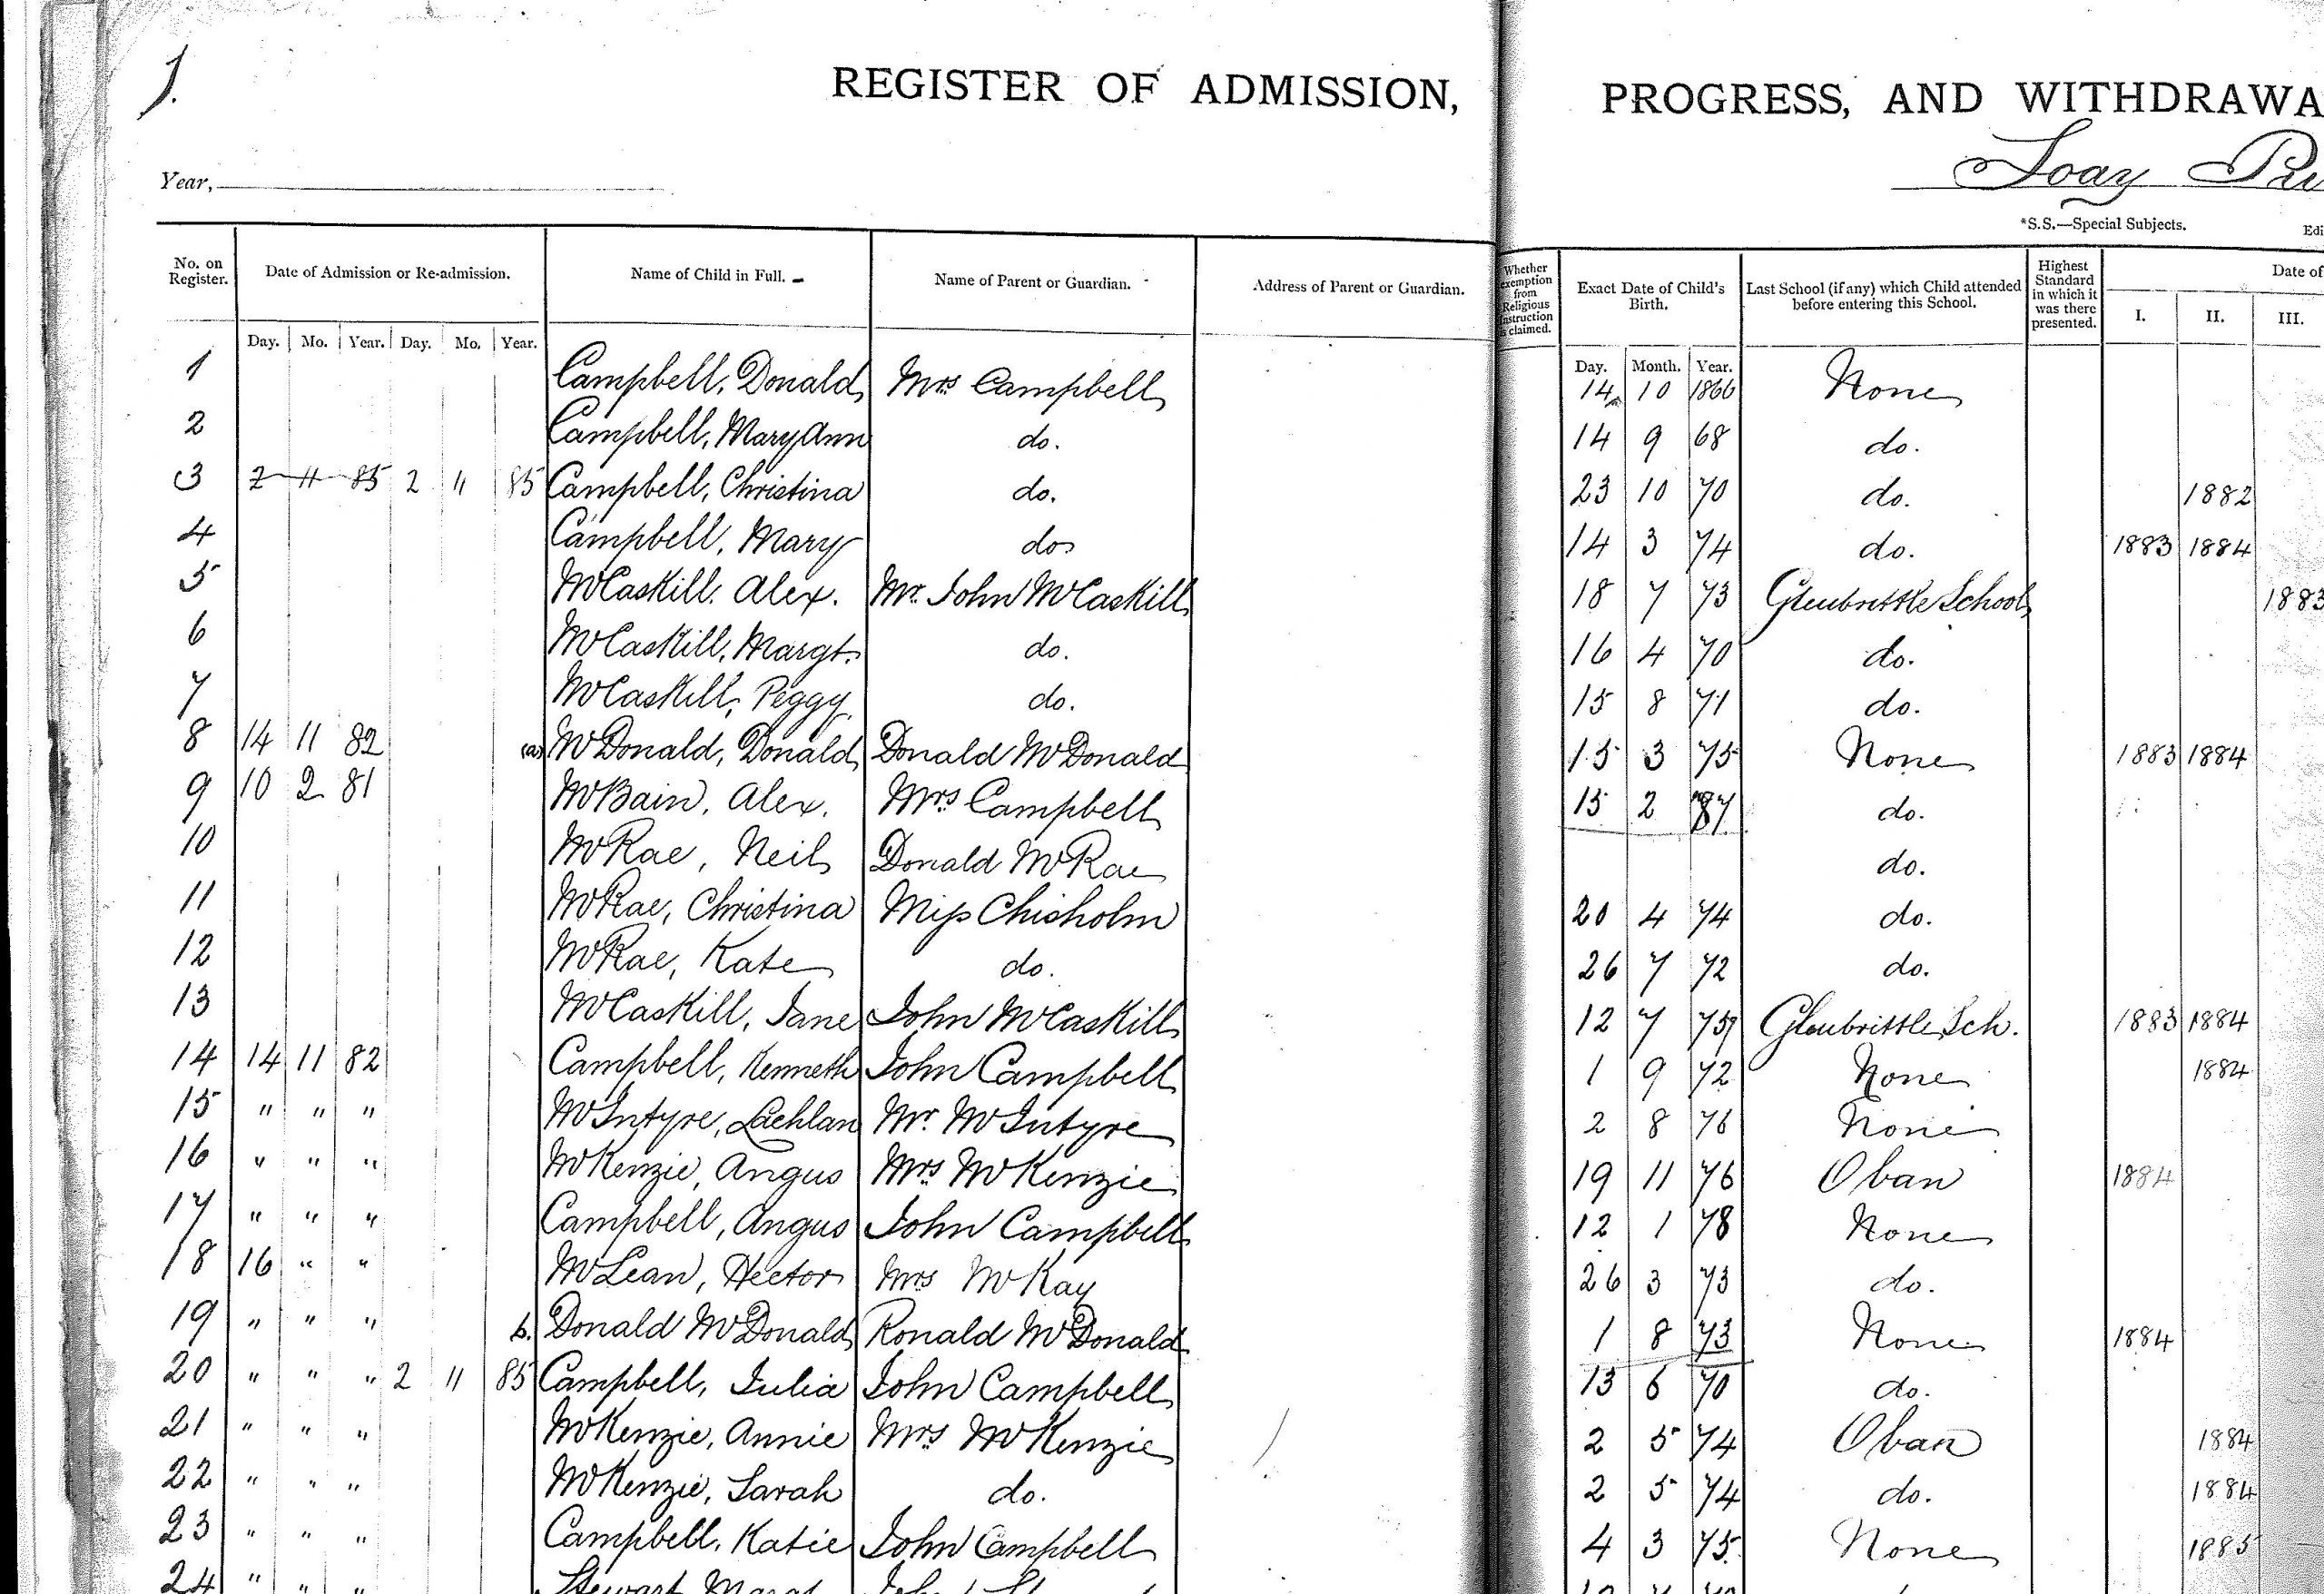 1.
REGISTER OF ADMISSION, PROGRESS, AND WITHDRAWA
Year,
Soay
*S.S.—Special Subjects. Edi
No. on Register. Date of Admission or Re-admission. Name of Child in Full. Name of Parent or Guardian. Address of Parent or Guardian. Whether exemption from Religious Instruction is claimed. Exact Date of Child's Birth. Last School (if any) which Child attended before entering this School. Highest Standard in which it was there presented. Date of
I. II. III.
Day. Mo. Year. Day. Mo. Year. Day. Month. Year.
1 Campbell, Donald Mrs Campbell 14 10 1866 None
2 Campbell, Mary Ann do. 14 9 68 do.
3 2 11 85 2 11 85 Campbell, Christina do. 23 10 70 do. 1882
4 Campbell, Mary do 14 3 74 do. 1883 1884
5 McCaskill, Alex. Mr. John McCaskill 18 7 73 Glenbrittle School 1883
6 McCaskill, Margt. do. 16 4 70 do.
7 McCaskill, Peggy do. 15 8 71 do.
8 14 11 82 (a) McDonald, Donald Donald McDonald 15 3 75 None 1883 1884
9 10 2 81 McBain, Alex. Mrs Campbell 15 2 do.
10 McRae, Neil Donald McRae do.
11 McRae, Christina Miss Chisholm 20 4 74 do.
12 McRae, Kate do. 26 7 72 do.
13 McCaskill, Jane John McCaskill 12 7 Glenbrittle Sch. 1883 1884
14 14 11 82 Campbell, Kenneth John Campbell 1 9 72 None 1884
15 " " " McIntyre, Lachlan Mr. McIntyre 2 8 76 None
16 " " " McKenzie, Angus Mrs McKenzie 19 11 76 Oban 1884
17 " " " Campbell, Angus John Campbell 12 1 78 None
18 16 " " McLean, Hector Mrs McKay 26 3 73 do.
19 " " " b. Donald McDonald Ronald McDonald 1 8 73 None 1884
20 " " " 2 11 85 Campbell, Julia John Campbell 13 6 70 do.
21 " " " McKenzie, Annie Mrs McKenzie 2 5 74 Oban 1884
22 " " " McKenzie, Sarah do. 2 5 74 do. 1884
23 " " " Campbell, Katie John Campbell 4 3 75 None 1885
24 " " " Stewart,